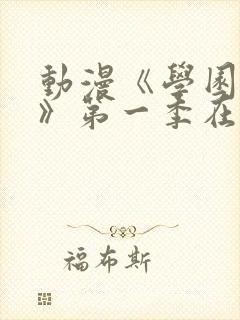 動漫《學園
》第一季在
福布斯